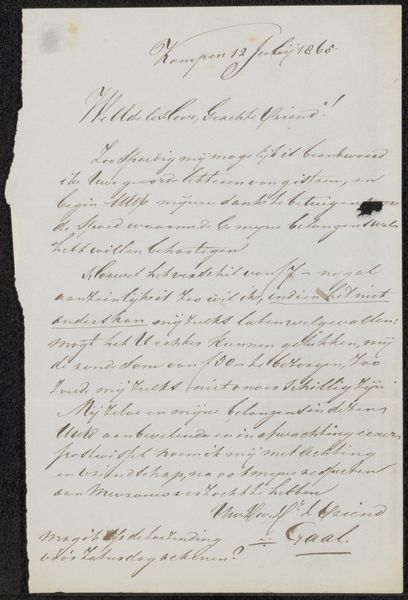 Kampen 12 Julij 1865.
WelEdele Heer, Geachte Vriend!
Zoo spoedig mij mogelijk is beantwoord
ik Uwe geëerde letteren van gisteren, en
begin UEd mijnen dank te betuigen voor
de spoed waarmede Ge mijne belangens wel
hebt willen behartigen
Alhoewel het verschil van f 7 - nog al
aanzienlijk is zoo wil ik, indien het niet
anders kan mij zulks laten welgevallen:
mogt het U echter kunnen gelukken, mij
de ronde som van f 50 - te bezorgen, zoo
zoud mij zulks niet onverschillig zijn
Mij zelve en mijne belangens in dezen
UEd aanbevelende en in afwachting eener
postwissel noem ik mij met achting
en vriendschap, na ook mijne respecten
aan Mevrouw verzocht te hebben
Uw Vriend
Gaal.
mag ik de toezending
vóór Zaturdag rekenen?